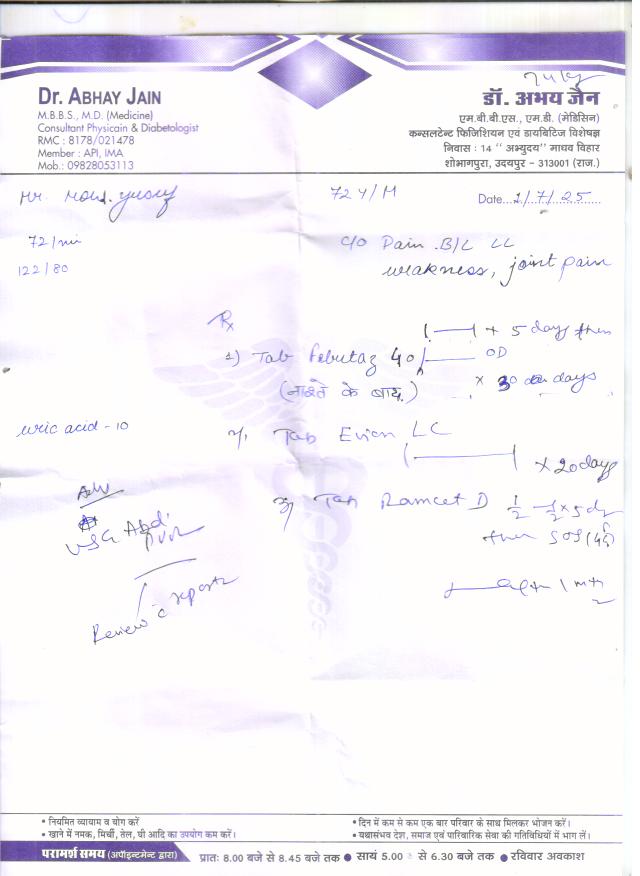 Dr. ABHAY JAIN
M.B.B.S., M.D. (Medicine)
Consultant Physicain & Diabetologist
RMC : 8178/021478
Member : API, IMA
Mob.: 09828053113
डॉ. अभय जैन
एम.बी.बी.एस., एम.डी. (मेडिसिन)
कन्सलटेन्ट फिजिशियन एवं डायबिटिज विशेषज्ञ
निवास : 14 "अभ्युदय" माधव विहार
शोभागपुरा, उदयपुर - 313001 (राज.)
Mr. Mohd. Yusuf 72 Y/M Date...1/7/25
72/mi
122/80
C/O Pain B/L LL
weakness, joint pain
Rx
+ 5 days then
1) Tab Febutaz 40 OD
(नाश्ते के बाद) x 30 days
uric acid - 10
2) Tab Evion LC
x 20 days
Adv
USG Abd.
3) Tab Ramcet D 1/2 - 1/2 x 5 d
then SOS
Review c reports
• नियमित व्यायाम व योग करें
• खाने में नमक, मिर्ची, तेल, घी आदि का उपयोग कम करें।
• दिन में कम से कम एक बार परिवार के साथ मिलकर भोजन करें।
• यथासंभव देश, समाज एवं पारिवारिक सेवा की गतिविधियों में भाग लें।
परामर्श समय (अपॉइन्टमेन्ट द्वारा) प्रातः 8.00 बजे से 8.45 बजे तक ● सायं 5.00 से 6.30 बजे तक ● रविवार अवकाश